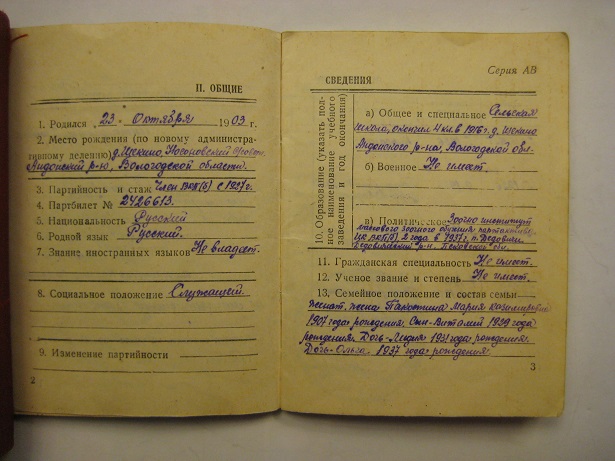 II. ОБЩИЕ
1. Родился „23„ Октября 1903 г.
2. Место рождения (по новому административному делению) д. Шекино,
Андомский р-н, Вологодской области.
3. Партийность и стаж Член ВКП(б) с 1937 г.
4. Партбилет № 2426613.
5. Национальность Русский
6. Родной язык Русский.
7. Знание иностранных языков Не владеет.
8. Социальное положение Служащий.
9. Изменение партийности
2
Серия АВ
СВЕДЕНИЯ
10. Образование (указать полное наименование учебного заведения и год окончания)
а) Общее и специальное Сельская
школа, окончил 4 кл. в 1916 г. д. Шекино
Андомского р-на, Вологодской обл.
б) Военное Не имеет.
в) Политическое Заочно институт
заочного обучения партактива
ЦК ВКП(б) 2 года в 1937 г.
11. Гражданская специальность Не имеет.
12. Ученое звание и степень Не имеет.
13. Семейное положение и состав семьи
Женат. жена Мария Казимировна
1907 года рождения. Сын-Виталий 1939 года
рождения. Дочь-Лидия 1931 года рождения.
Дочь-Ольга. 1937 года рождения.
3